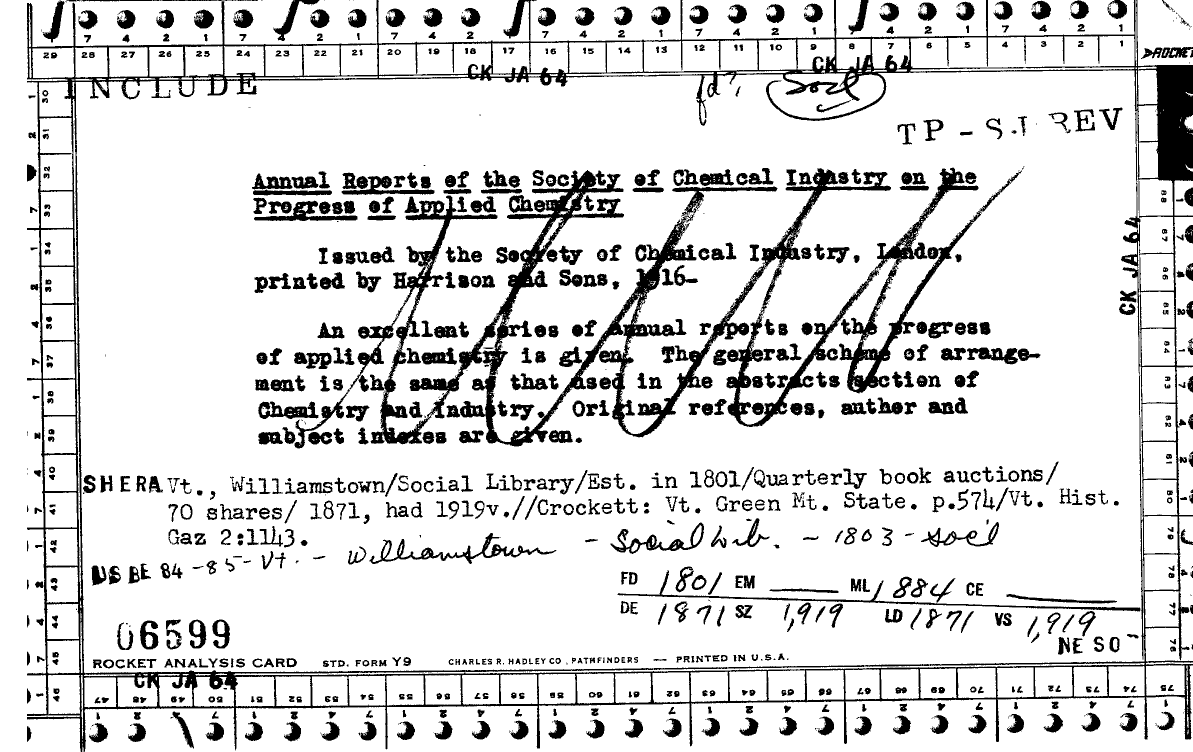 29 28 27 26 25 24 23 22 21 20 19 18 17 16 15 14 13 12 11 10 9 8 7 6 5 4 3 2 1
CK JA 64
CK JA 64
INCLUDE
fd?
Soc'l
TP - SJ REV
Annual Reports of the Society of Chemical Industry on the
Progress of Applied Chemistry
Issued by the Society of Chemical Industry, London,
printed by Harrison and Sons, 1916-
CK JA 64
An excellent series of annual reports on the progress
of applied chemistry is given. The general scheme of arrange-
ment is the same as that used in the abstracts section of
Chemistry and Industry. Original references, author and
subject indexes are given.
SHERA Vt., Williamstown/Social Library/Est. in 1801/Quarterly book auctions/
70 shares/ 1871, had 1919v.//Crockett: Vt. Green Mt. State. p.574/Vt. Hist.
Gaz 2:1143.
US BE 84-85-Vt. - Williamstown - Social Lib. - 1803 - soc'l
FD 1801 EM ML 1884 CE
DE 1871 SZ 1,919 LD 1871 VS 1,919
NE SO-
06599
ROCKET ANALYSIS CARD STD. FORM Y9 CHARLES R. HADLEY CO., PATHFINDERS — PRINTED IN U.S.A.
CK JA 64
47 48 49 50 51 52 53 54 55 56 57 58 59 60 61 62 63 64 65 66 67 68 69 70 71 72 73 74 75